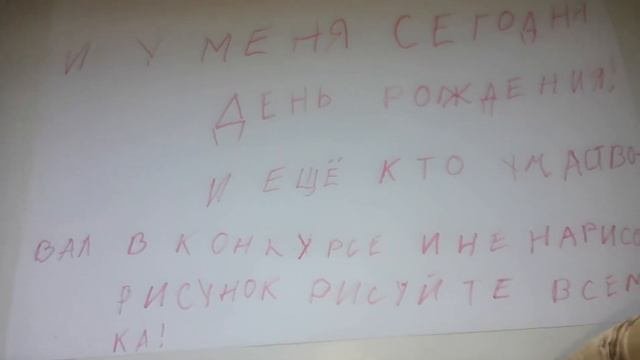 И У МЕНЯ СЕГОДНЯ
ДЕНЬ РОЖДЕНИЯ!
И ЕЩЁ КТО УЧАСТВО-
ВАЛ В КОНКУРСЕ И НЕ НАРИСО
РИСУНОК РИСУЙТЕ ВСЕМ
КА!